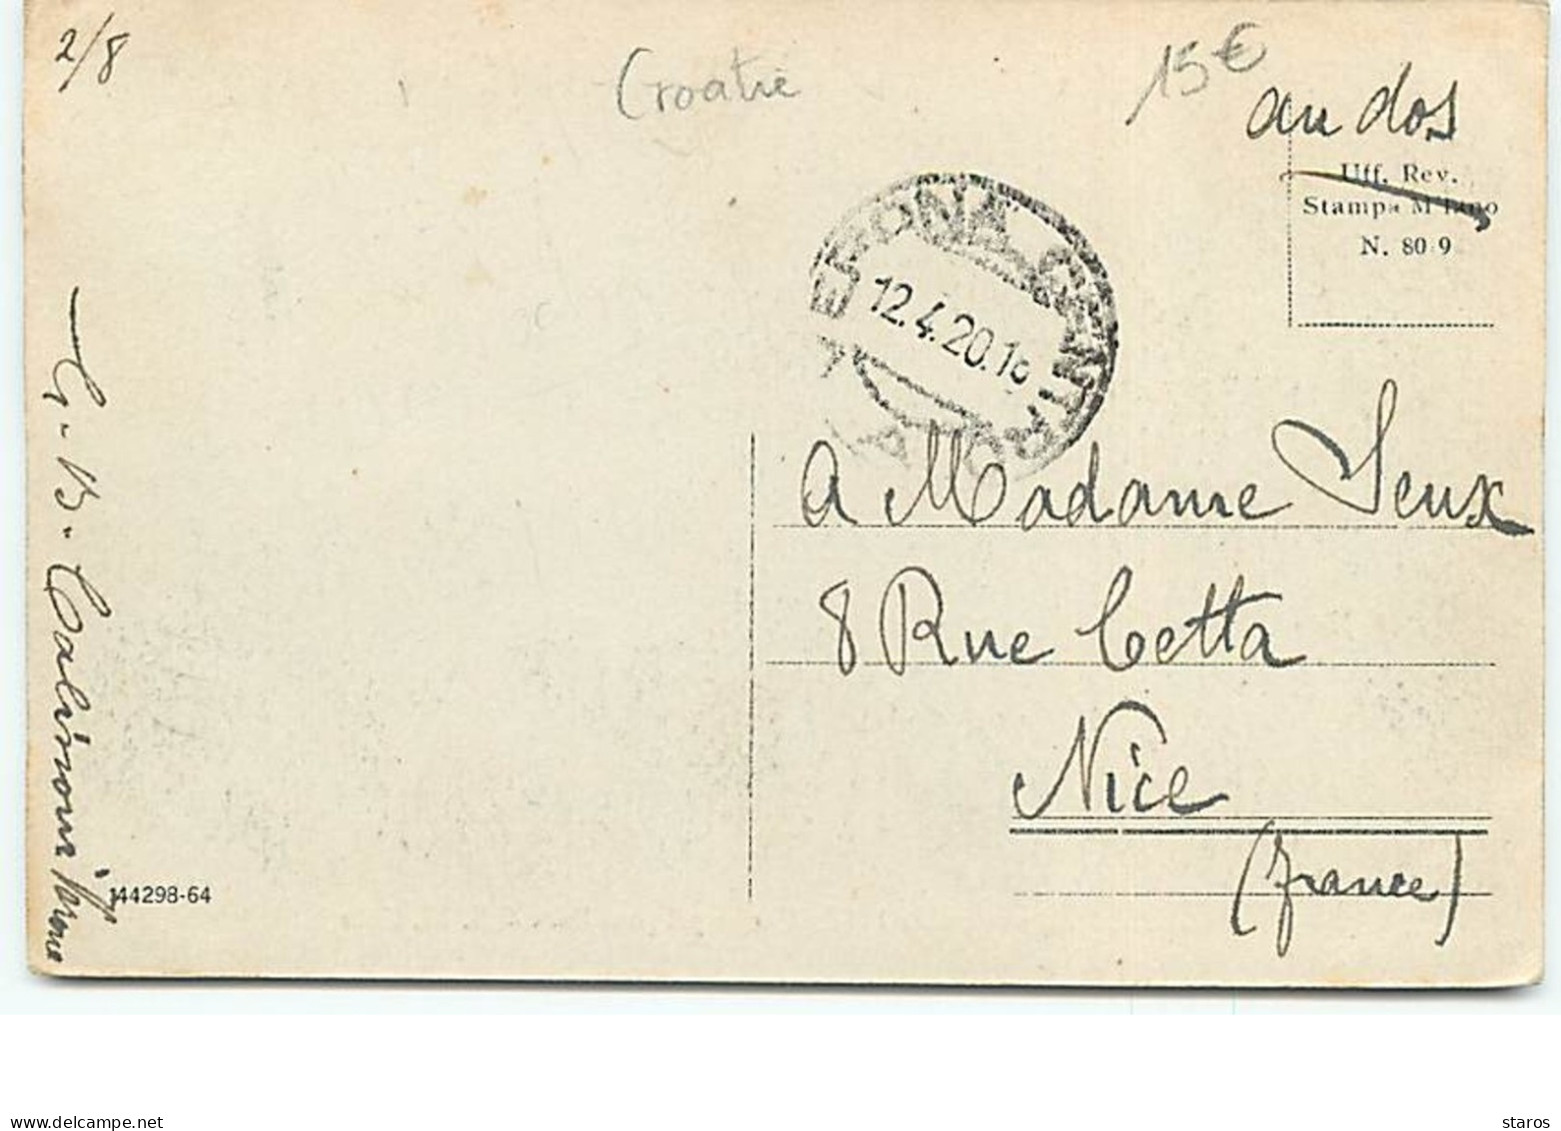 2/8
Croatie
15€
au dos
Uff. Rev.
Stampa Milano
N. 80 9
VERONA CENTRO
12.4.20.16
A Madame Seux
8 Rue Cetta
Nice
(France)
G-B-
144298-64
https://www.delcampe.net
staros